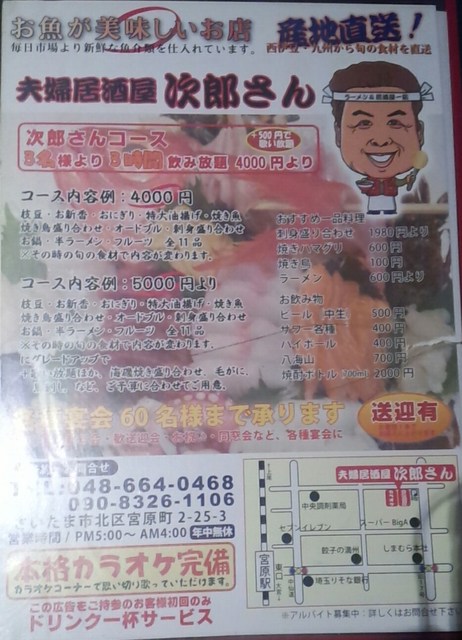 お魚が美味しいお店
産地直送！
毎日市場より新鮮な魚介類を仕入れています。
西伊豆・九州から旬の食材を直送
夫婦居酒屋 次郎さん
次郎さんコース
+500円で
3名様より 3時間飲み放題 4000円より
コース内容例：4000円
枝豆・お新香・おにぎり・特大油揚げ・焼き魚
焼き鳥盛り合わせ・オードブル・刺身盛り合わせ
お鍋・半ラーメン・フルーツ 全11品
※その時の旬の食材で内容が変わります。
コース内容例：5000円より
枝豆・お新香・おにぎり・特大油揚げ・焼き魚
焼き鳥盛り合わせ・オードブル・刺身盛り合わせ
お鍋・半ラーメン・フルーツ 全11品
※その時の旬の食材で内容が変わります。
にグレードアップで
放題ほか、海鮮焼き盛り合わせ、毛がに、
など、ご予算に合わせてご用意。
おすすめ一品料理
刺身盛り合わせ 1980円より
焼きハマグリ 600円
焼き鳥 100円
ラーメン 600円より
お飲み物
ビール 中生 500円
サワー各種 400円
ハイボール 400円
八海山 700円
焼酎ボトル (700ml) 2000円
宴会60名様まで承ります
送迎有
歓送迎会
同窓会など、各種宴会に
合せ
048-664-0468
090-8326-1106
さいたま市北区宮原町2-25-3
営業時間/PM5:00〜AM4:00 年中無休
本格カラオケ完備
カラオケコーナーで思い切り歌っていただけます。
この広告をご持参のお客様初回のみ
ドリンク一杯サービス
夫婦居酒屋 次郎さん
中央調剤薬局
セブンイレブン
スーパーBigA
餃子の満州
しまむら本社
埼玉りそな銀行
宮原駅
※アルバイト募集中：詳しくはお問合せ下さい